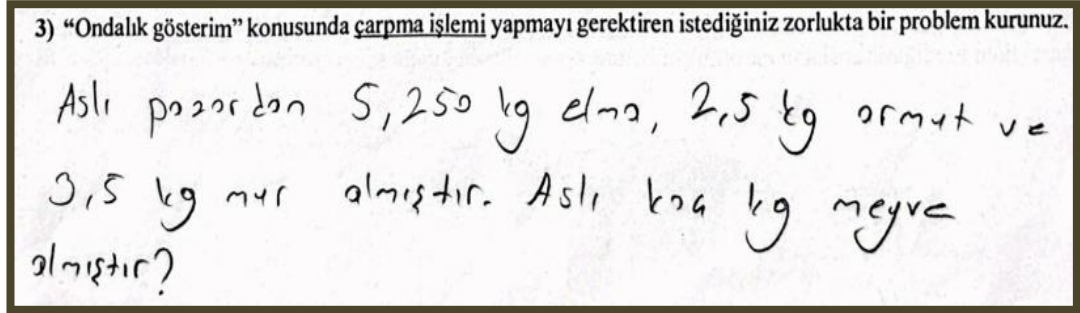 3) “Ondalık gösterim” konusunda çarpma işlemi yapmayı gerektiren istediğiniz zorlukta bir problem kurunuz.
Aslı pazardan 5,250 kg elma, 2,5 kg armut ve
3,5 kg muz almıştır. Aslı kaç kg meyve
almıştır?